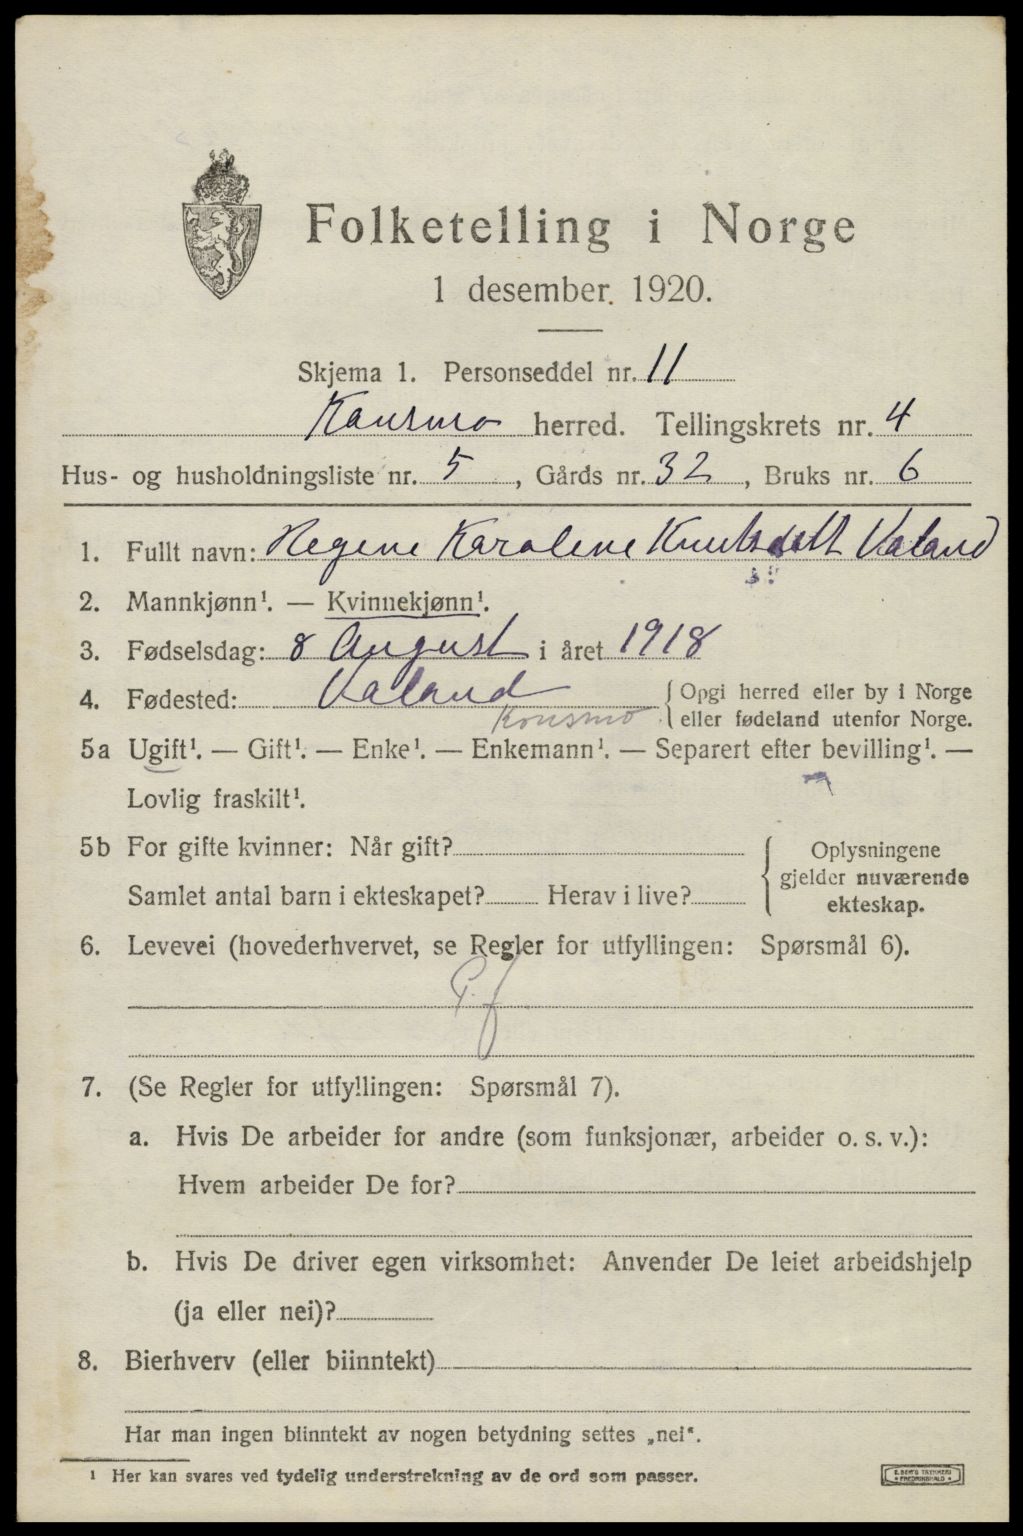 Folketelling i Norge
1 desember 1920.
Skjema 1. Personseddel nr. 11
Konsmo herred. Tellingskrets nr. 4
Hus- og husholdningsliste nr. 5, Gårds nr. 32, Bruks nr. 6
1. Fullt navn: Regine Karoline Knutsdatt Valand
2. Mannkjønn¹. — Kvinnekjønn¹.
3. Fødselsdag: 8 August i året 1918
4. Fødested: Valand { Opgi herred eller by i Norge
Konsmo eller fødeland utenfor Norge.
5a Ugift¹. — Gift¹. — Enke¹. — Enkemann¹. — Separert efter bevilling¹. —
Lovlig fraskilt¹.
5b For gifte kvinner: Når gift? { Oplysningene
gjelder nuværende
Samlet antal barn i ekteskapet? Herav i live? ekteskap.
6. Levevei (hovederhvervet, se Regler for utfyllingen: Spørsmål 6).
7. (Se Regler for utfyllingen: Spørsmål 7).
a. Hvis De arbeider for andre (som funksjonær, arbeider o. s. v.):
Hvem arbeider De for?
b. Hvis De driver egen virksomhet: Anvender De leiet arbeidshjelp
(ja eller nei)?
8. Bierhverv (eller biinntekt)
Har man ingen biinntekt av nogen betydning settes „nei".
¹ Her kan svares ved tydelig understrekning av de ord som passer.
E. BERG TRYKKERI
FREDRIKSHALD